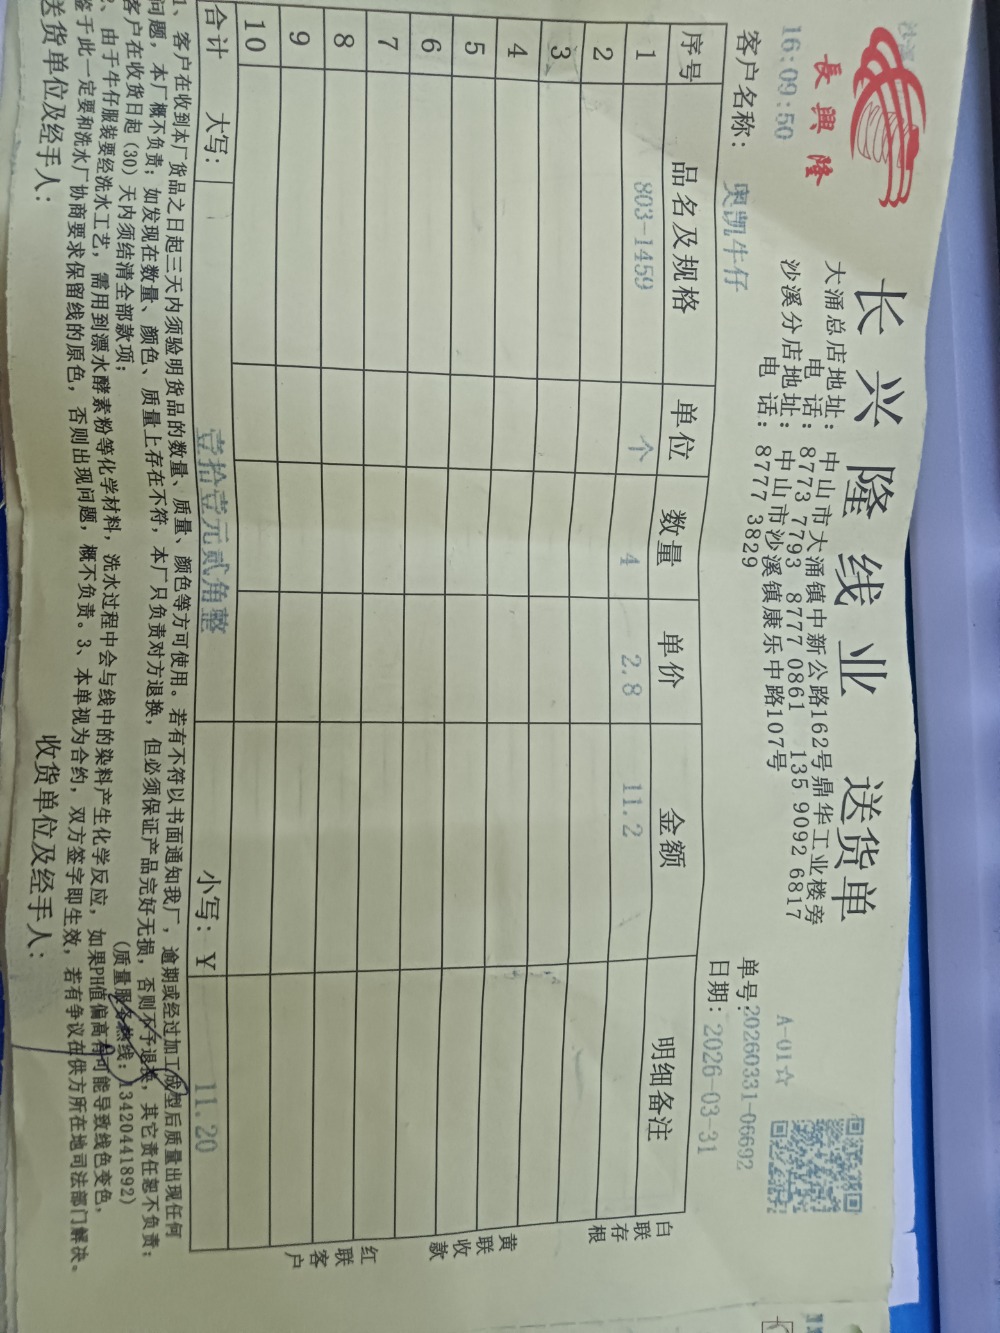 長興隆
长兴隆线业 送货单
大涌总店地址：中山市大涌镇中新公路162号鼎华工业楼旁
电 话：8773 7793 8777 0861 135 9092 6817
沙溪分店地址：中山市沙溪镇康乐中路107号
电 话：8777 3829
16:09:50
A-01☆
单号:20260331-06692
客户名称：奥凯牛仔
日期：2026-03-31
序号 品名及规格 单位 数量 单价 金额 明细备注
1 803-1459 个 4 2.8 11.2
2
3
4
5
6
7
8
9
10
合计 大写： 壹拾壹元贰角整 小写：¥ 11.20
白联存根
黄联收款
红联客户
1、客户在收到本厂货品之日起三天内须验明货品的数量、质量、颜色等方可使用。若有不符以书面通知我厂，逾期或经过加工成型后质量出现任何
问题，本厂概不负责；如发现在数量、颜色、质量上存在不符，本厂只负责对方退换，但必须保证产品完好无损，否则不予退换，其它责任恕不负责；
客户在收货日起（30）天内须结清全部款项； （质量服务热线：13420441892）
2、由于牛仔服装要经洗水工艺，需用到漂水酵素粉等化学材料，洗水过程中会与线中的染料产生化学反应，如果PH值偏高有可能导致线色变色，
鉴于此一定要和洗水厂协商要求保留线的原色，否则出现问题，概不负责。3、本单视为合约，双方签字即生效，若有争议在供方所在地司法部门解决。
送货单位及经手人： 收货单位及经手人：